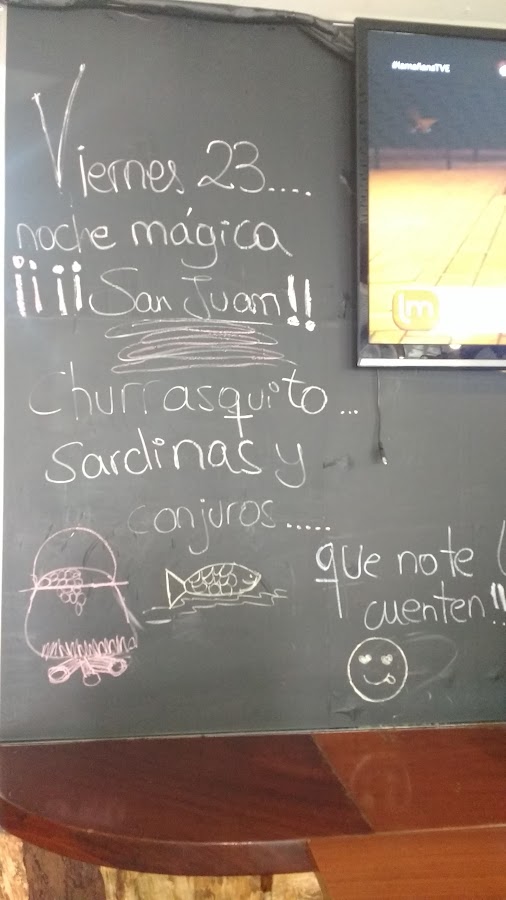 #lamañanaTVE
lm
Viernes 23....
noche mágica
¡¡¡¡San Juan!!
Churrasquito...
Sardinas y
conjuros.....
que no te l
cuenten!!